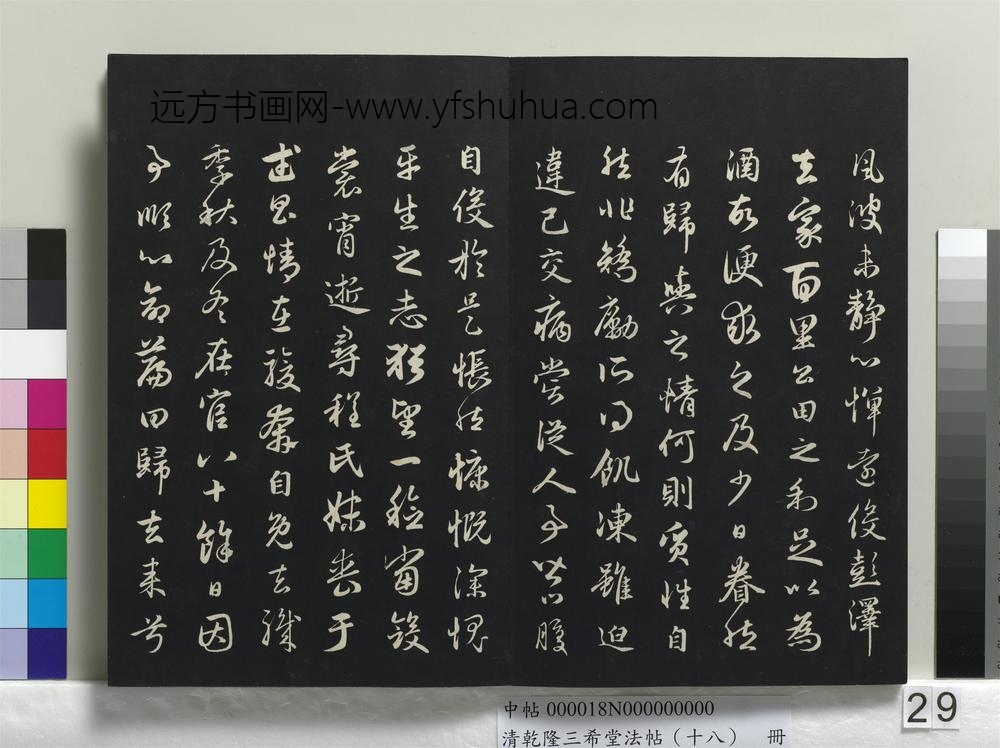 远方书画网-www.yfshuhua.com
風波未静心憚遠役彭澤
去家百里公田之利足以為
酒故便求之及少日眷然
有歸與之情何則質性自
然非矯勵所得飢凍雖迫
違己交病嘗從人事皆口腹
自役於是悵然慷慨深愧
平生之志猶望一稔當斂
裳宵逝尋程氏妹喪于
武昌情在駿奔自免去職
季秋及冬在官八十餘日因
事順心命篇曰歸去来兮
中帖 000018N000000000
清乾隆三希堂法帖（十八） 冊
29